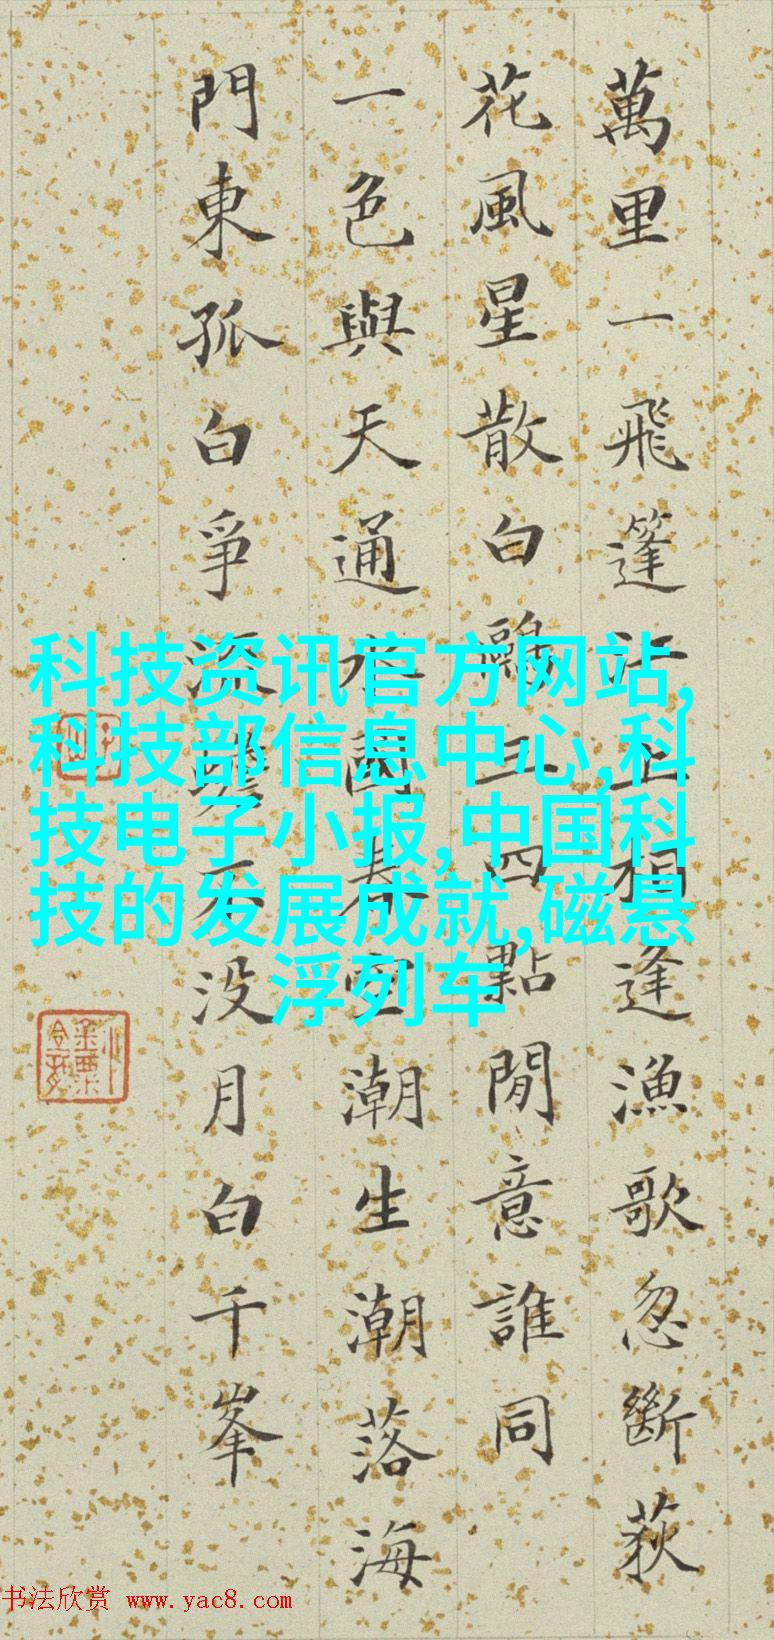 萬里一飛篷江上相逢漁歌忽斷荻
花風星散白鷗三四點閒意誰同
一色與天通水國春空潮生潮落海
門東孤白爭流蟾不没月白千峯
科技资讯官方网站,
科技部信息中心,科
技电子小报,中国科
技的发展成就,磁悬
浮列车
书法欣赏 www.yac8.com